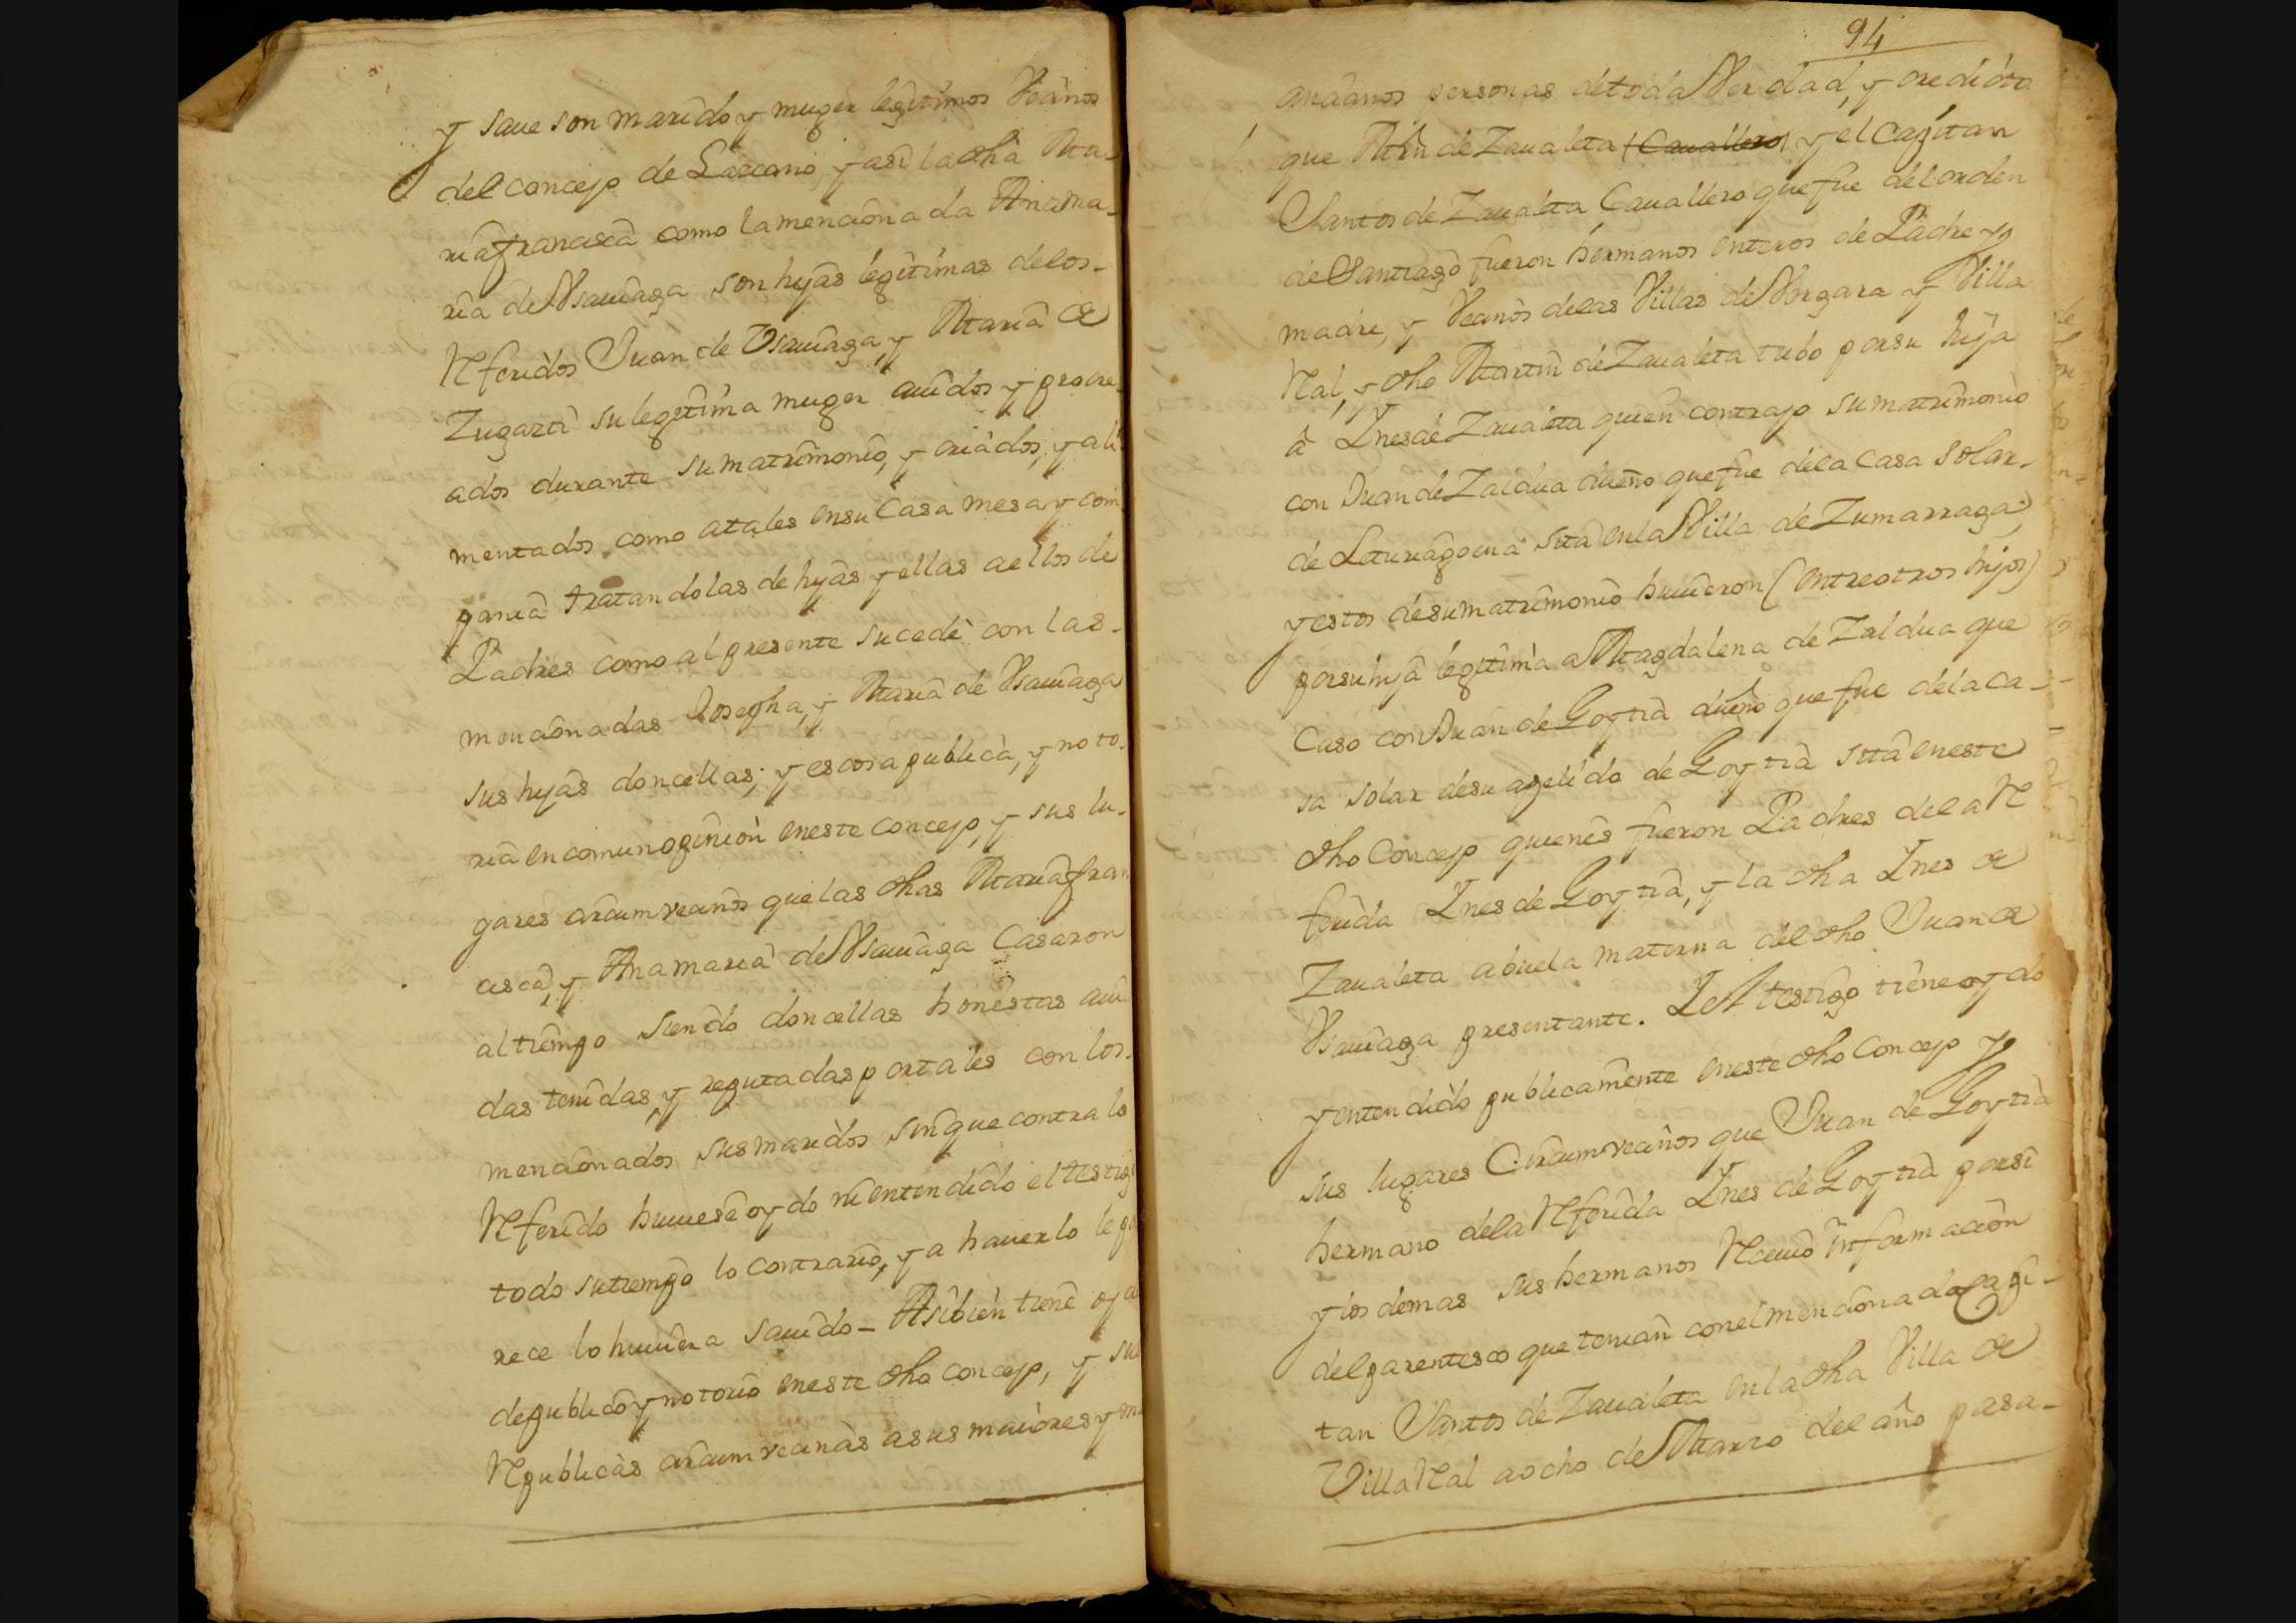 y saue son marido y muger legitimos Vecinos
del concejo de Lazcano, y asi la dha Ma-
ria francisca como la mencionada Ana ma-
ria de Vsauiaga son hijas legitimas de los
Referidos Juan de Vsauiaga, y Maria de
Zugarti su legitima muger auidos y procre-
ados durante su matrimonio, y criados, y ali
mentados como a tales en su Casa mesa y com
pania tratandolas de hijas y ellas a ellos de
Padres como al presente sucede con las
mencionadas Josepha, y Maria de Vsauiaga
sus hijas doncellas; y es cosa publica, y noto-
ria en comun opinion en este concejo, y sus lu-
gares circumvecinos que las dhas Maria fran
cisca, y Ana maria de Vsauiaga Casaron
al tiempo siendo doncellas honestas aui
das tenidas, y reputadas por tales con los
mencionados sus maridos sin que contra lo
Referido huuiese oydo ni entendido el testigo
todo su tiempo lo contrario, y a hauerlo le pa
rece lo huuiera sauido - Asibien tiene oyd
de publico y notorio en este dho concejo, y sus
Republicas circumvecinas a sus maiores y an
94
ancianos personas de toda Verdad, y credicto
que Mrn de Zaualeta (Cauallero) y el Capitan
Santos de Zaualeta Cauallero que fue del orden
de Santiago fueron hermanos enteros de Padre y
madre, y Vecinos de las Villas de Vergara y Villa
Real, y dho Martin de Zaualeta tubo por su hija
a Ynes de Zaualeta quien contrajo su matrimonio
con Juan de Zaldua dueño que fue de la casa solar
de Leturiagoena sita en la Villa de Zumarraga;
y estos de su matrimonio huuieron (entre otros hijos)
por su hija legitima a Magdalena de Zaldua que
Caso con Juan de Goytia dueño que fue de la ca-
sa solar de su apelido de Goytia sita en este
dho Concejo quienes fueron Padres de la Re
ferida Ynes de Goytia, y la dha Ynes de
Zaualeta abuela materna del dho Juan de
Vsauiaga presentante. Y el testigo tiene oydo
y entendido publicamente en este dho Concejo y
sus lugares Circumvecinos que Juan de Goytia
hermano de la Referida Ynes de Goytia por si
y los demas sus hermanos Receuio informacion
del parentesco que tenian con el mencionado Capi-
tan Santos de Zaualeta en la dha Villa de
Villa Real a ocho de Marzo del año pasa-